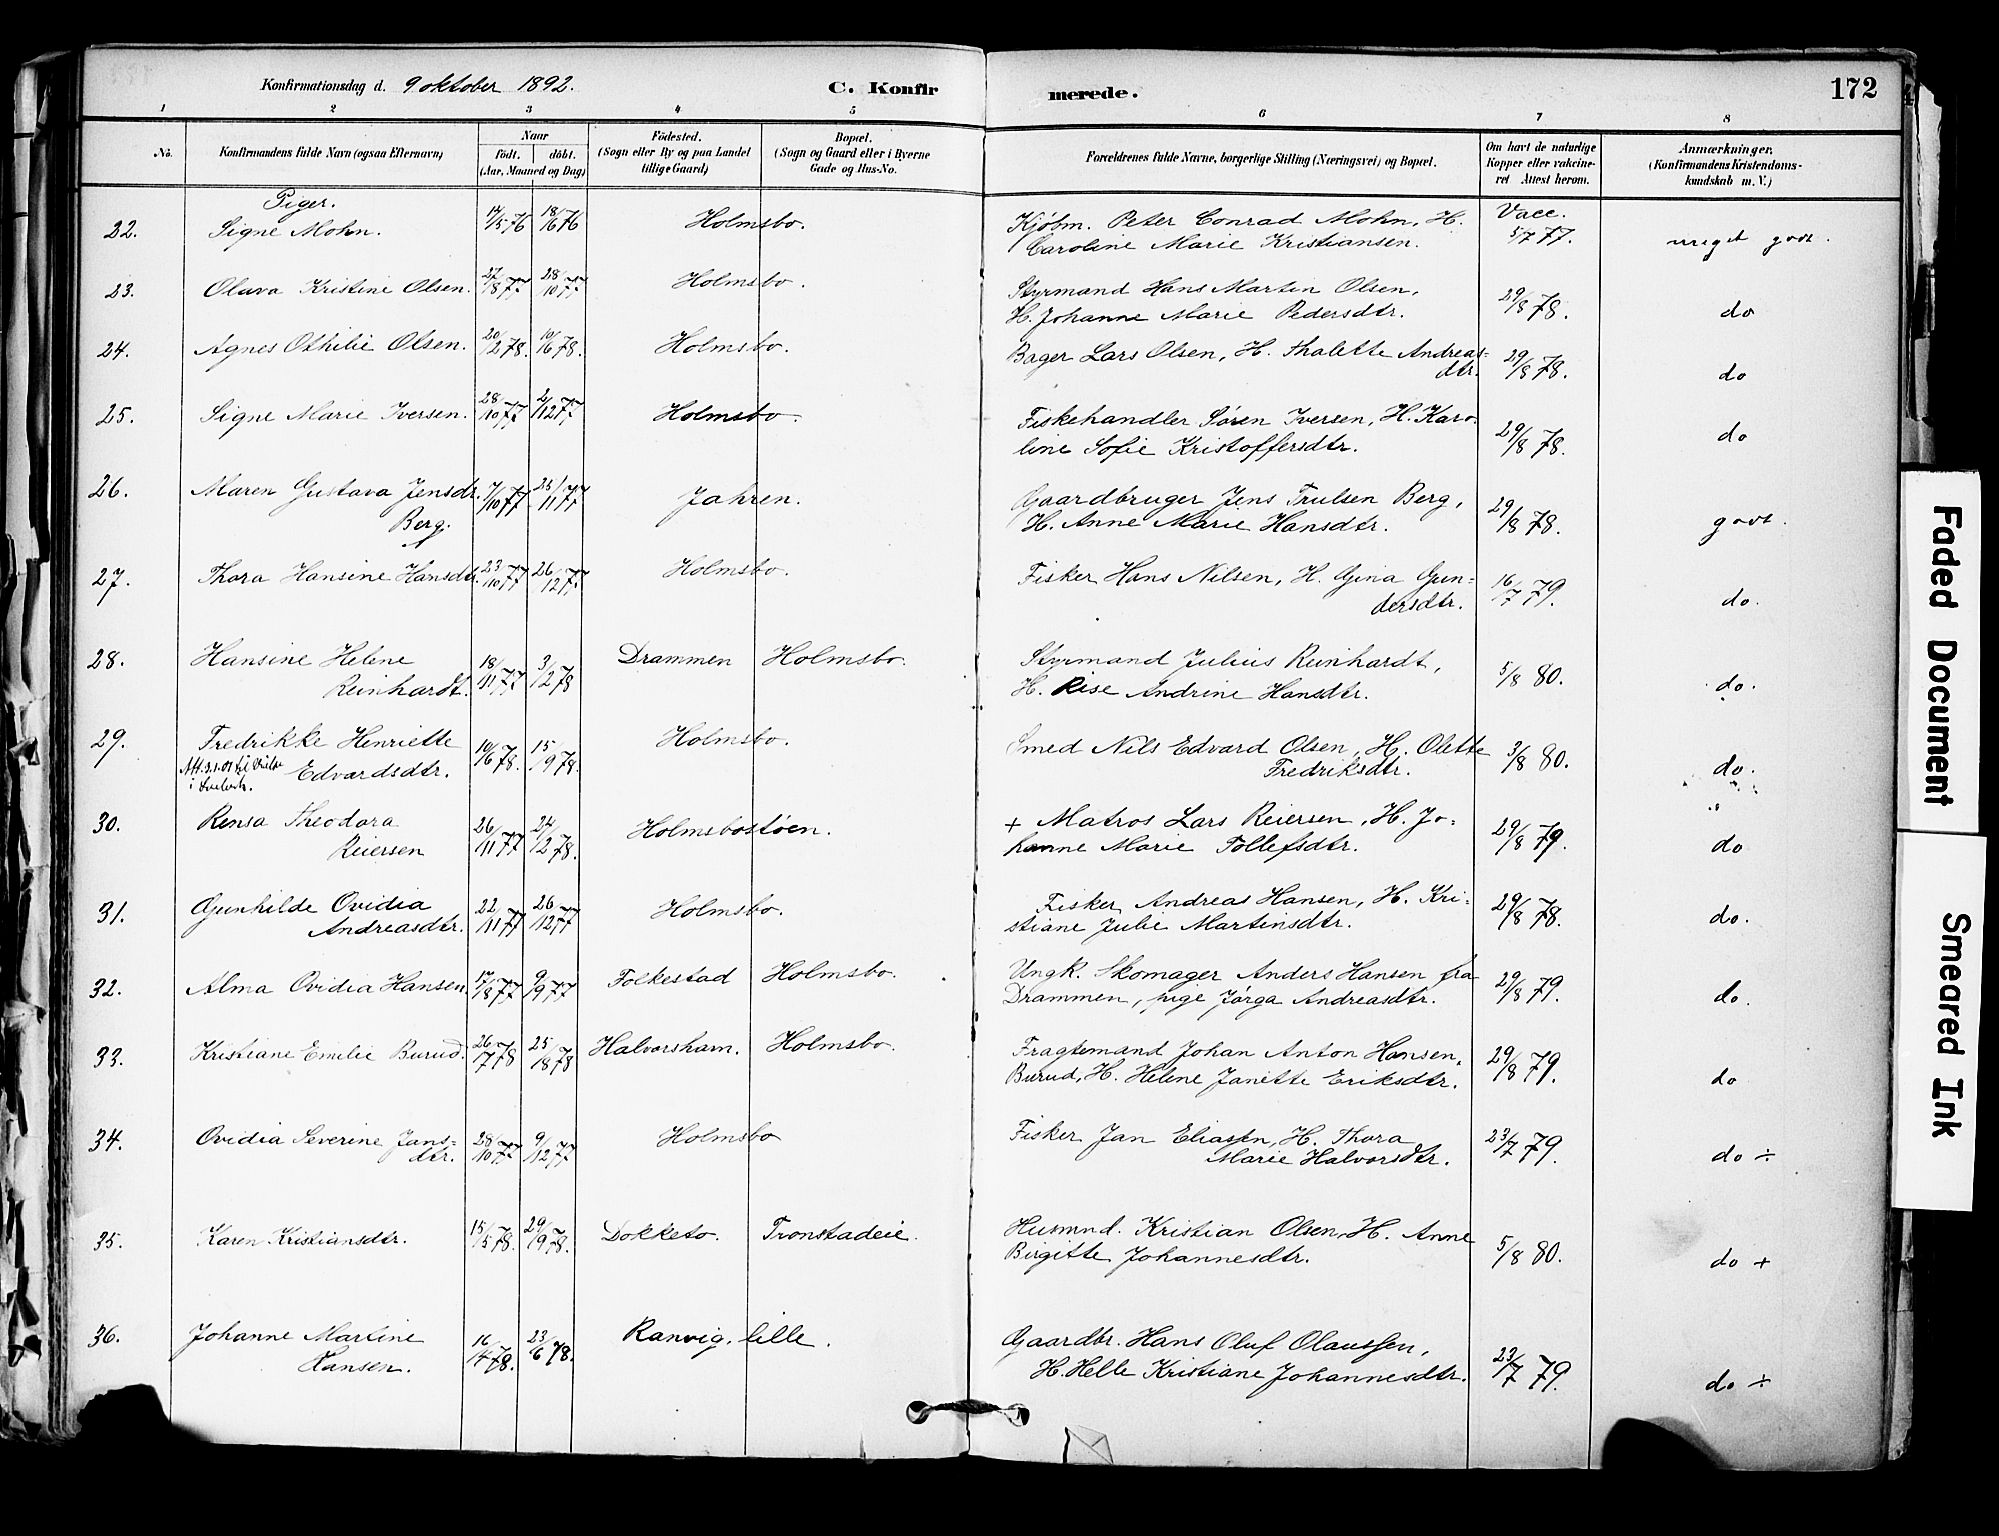 Konfirmationsdag d. 9 oktober 1892. C. Konfirmerede. 172
1 2 3 4 5 6 7 8
No. Konfirmandens fulde Navn (ogsaa Efternavn) Naar født. døbt. (Aar, Maaned og Dag) Fødested. (Sogn eller By og paa Landet tillige Gaard) Bopæl. (Sogn og Gaard eller i Byerne Gade og Hus-No. Forældrenes fulde Navne, borgerlige Stilling (Næringsvei) og Bopæl. Om havt de naturlige Kopper eller vakcineret Attest herom. Anmærkninger, (Konfirmandens Kristendomskundskab m. V.)
Piger.
22. Signe Mohn. 17/5 76 18/6 76 Holmsbo. Kjøbm. Peter Conrad Mohn, H. Vacc.
Caroline Marie Kristiansen. 5/7 77. meget godt.
23. Olava Kristine Olsen. 27/8 77 28/10 77 Holmsbo. Styrmand Hans Martin Olsen,
H. Johanne Marie Pedersdtr. 29/8 78. do
24. Agnes Othilie Olsen. 20/2 78. 10/6 78. Holmsbo. Bager Lars Olsen, H. Thalette Andreas=
dtr. 29/8 78. do
25. Signe Marie Iversen. 28/10 77 2/12 77 Holmsbo. Fiskehandler Søren Iversen, H. Karo=
line Sofie Kristoffersdtr. 29/8 78. do
26. Maren Gustava Jensdr. 7/10 77 25/11 77 Jahren. Gaardbruger Jens Trulsen Berg,
Berg. H. Anne Marie Hansdtr. 29/8 78. godt.
27. Thora Hansine Hansdtr. 23/10 77 26/12 77 Holmsbo. Fisker Hans Nilsen, H. Gina Gun=
dersdtr. 16/7 79. do.
28. Hansine Helene 18/11 77 3/2 78 Drammen Holmsbo. Styrmand Julius Reinhardt,
Reinhardt. H. Rise Andrine Hansdtr. 5/8 80. do.
29. Fredrikke Henriette 10/6 78. 15/9 78. Holmsbo. Smed Nils Edvard Olsen, H. Olette
Att. 3.1.01 til
i Edvardsdtr. Fredriksdtr. 3/8 80. do.
30. Rensa Theodora 26/11 77 24/2 78. Holmsbostøen. + Matros Lars Reiersen, H. Jo=
Reiersen hanne Marie Tollefsdtr. 29/8 79. do
31. Gunhilde Ovidia 22/11 77 26/12 77 Holmsbo. Fisker Andreas Hansen, H. Kri=
Andreasdtr. stiane Julie Martinsdtr. 29/8 78. do.
32. Alma Ovidia Hansen. 17/8 77 9/9 77 Folkestad Holmsbo. Ungk. Skomager Anders Hansen fra
Drammen, pige Jørga Andreasdtr. 29/8 79. do.
33. Kristiane Emilie Burud. 26/7 78 25/8 78 Halvorshavn. Holmsbo. Fragtemand Johan Anton Hansen
Burud, H. Helene Janette Eriksdtr. 29/8 79. do
34. Ovidia Severine Jans= 28/10 77 9/12 77 Holmsbo Fisker Jan Eliasen, H. Thora
dtr. Marie Halvorsdtr. 23/7 79. do ÷
35. Karen Kristiansdtr. 15/5 78. 29/9 78. Dokketo. Tronstadeie. Husmnd. Kristian Olsen, H. Anne
Birgitte Johannesdtr. 5/8 80. do +
36. Johanne Martine 16/4 78. 23/6 78. Ranvig, lille. Gaardbr. Hans Oluf Olaussen,
Hansen. H. Helle Kristiane Johannesdtr. 23/7 79. do ÷
Faded Document
Smeared Ink